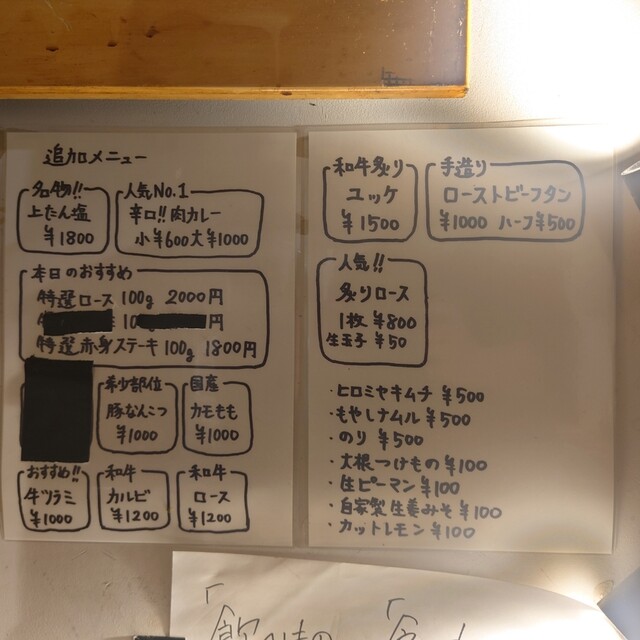 追加メニュー
名物!!
上たん塩
¥1800
人気No.1
辛口!!肉カレー
小¥600大¥1000
本日のおすすめ
特選ロース 100g 2000円
10 円
特選赤身ステーキ 100g 1800円
希少部位
豚なんこつ
¥1000
国産
カモもも
¥1000
おすすめ!!
牛ツラミ
¥1000
和牛
カルビ
¥1200
和牛
ロース
¥1200
和牛炙り
ユッケ
¥1500
手造り
ローストビーフタン
¥1000 ハーフ¥500
人気!!
炙りロース
1枚 ¥800
生玉子 ¥50
・ヒロミヤキムチ ¥500
・もやしナムル ¥500
・のり ¥500
・大根つけもの ¥100
・生ピーマン ¥100
・自家製生姜みそ ¥100
・カットレモン ¥100
「飲みもの